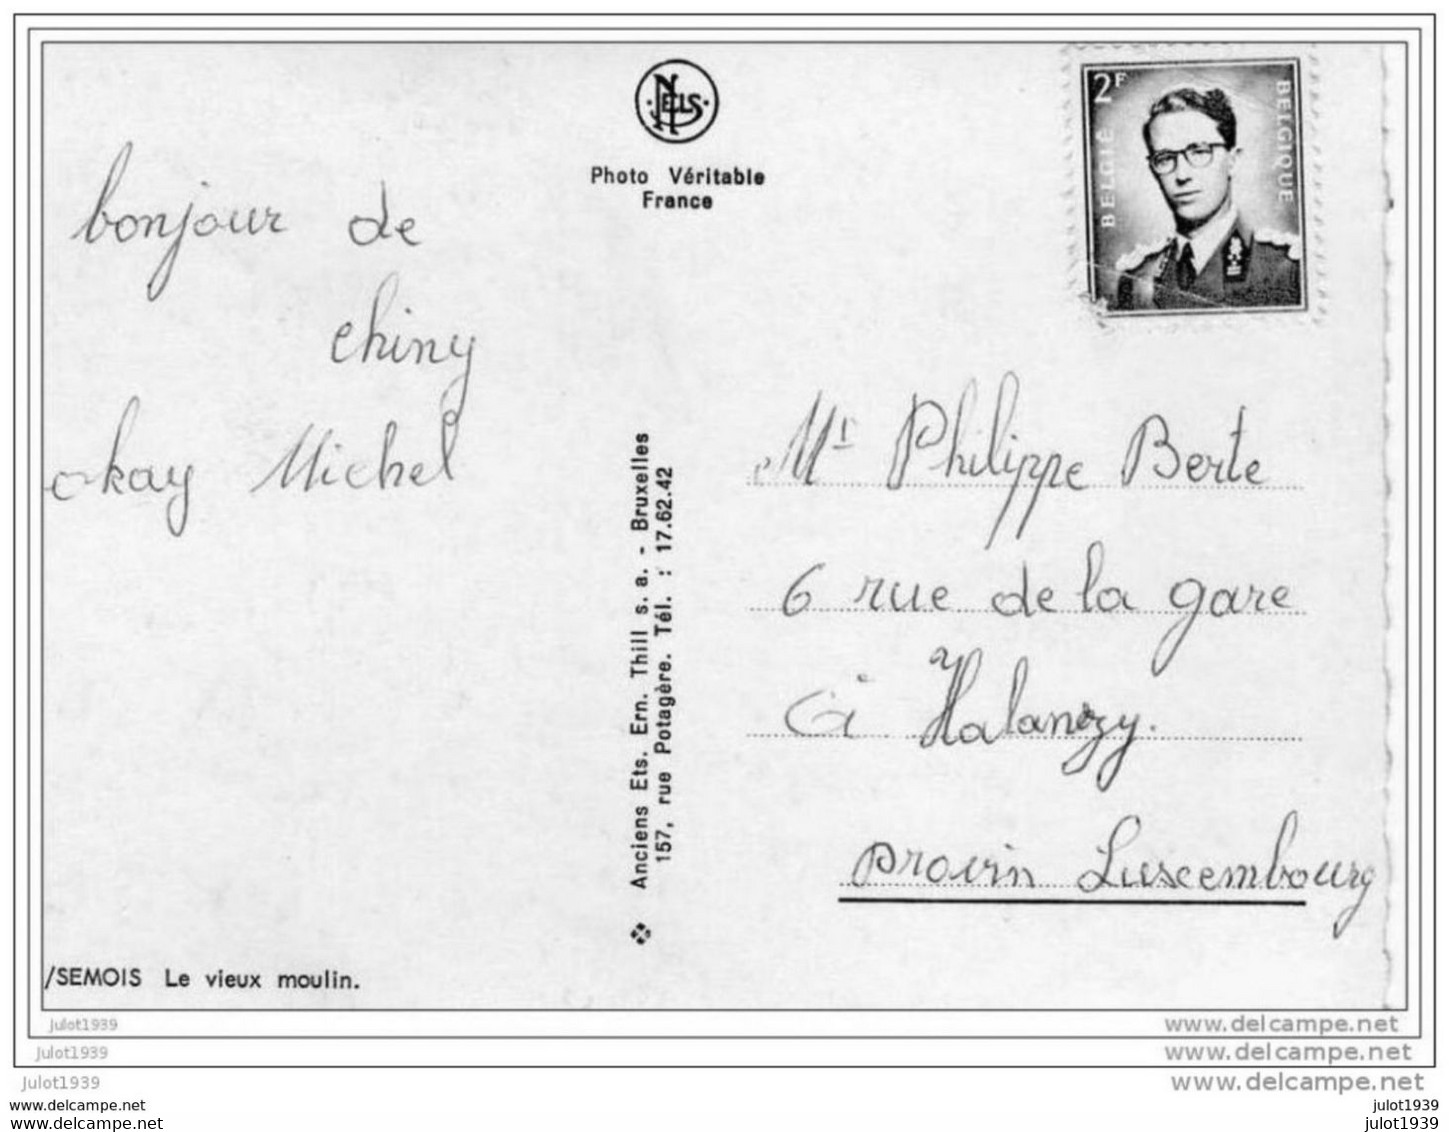 NELS
Photo Véritable
France
2F
BELGIË
BELGIQUE
bonjour de
chiny
okay Michel
Mr Philippe Berte
6 rue de la gare
à Halanzy.
provin Luxembourg
Anciens Ets. Ern. Thill s. a. - Bruxelles
157, rue Potagère. Tél. : 17.62.42
/SEMOIS Le vieux moulin.
julot1939
www.delcampe.net
julot1939
www.delcampe.net
julot1939
www.delcampe.net
www.delcampe.com
julot1939
www.delcampe.com
julot1939